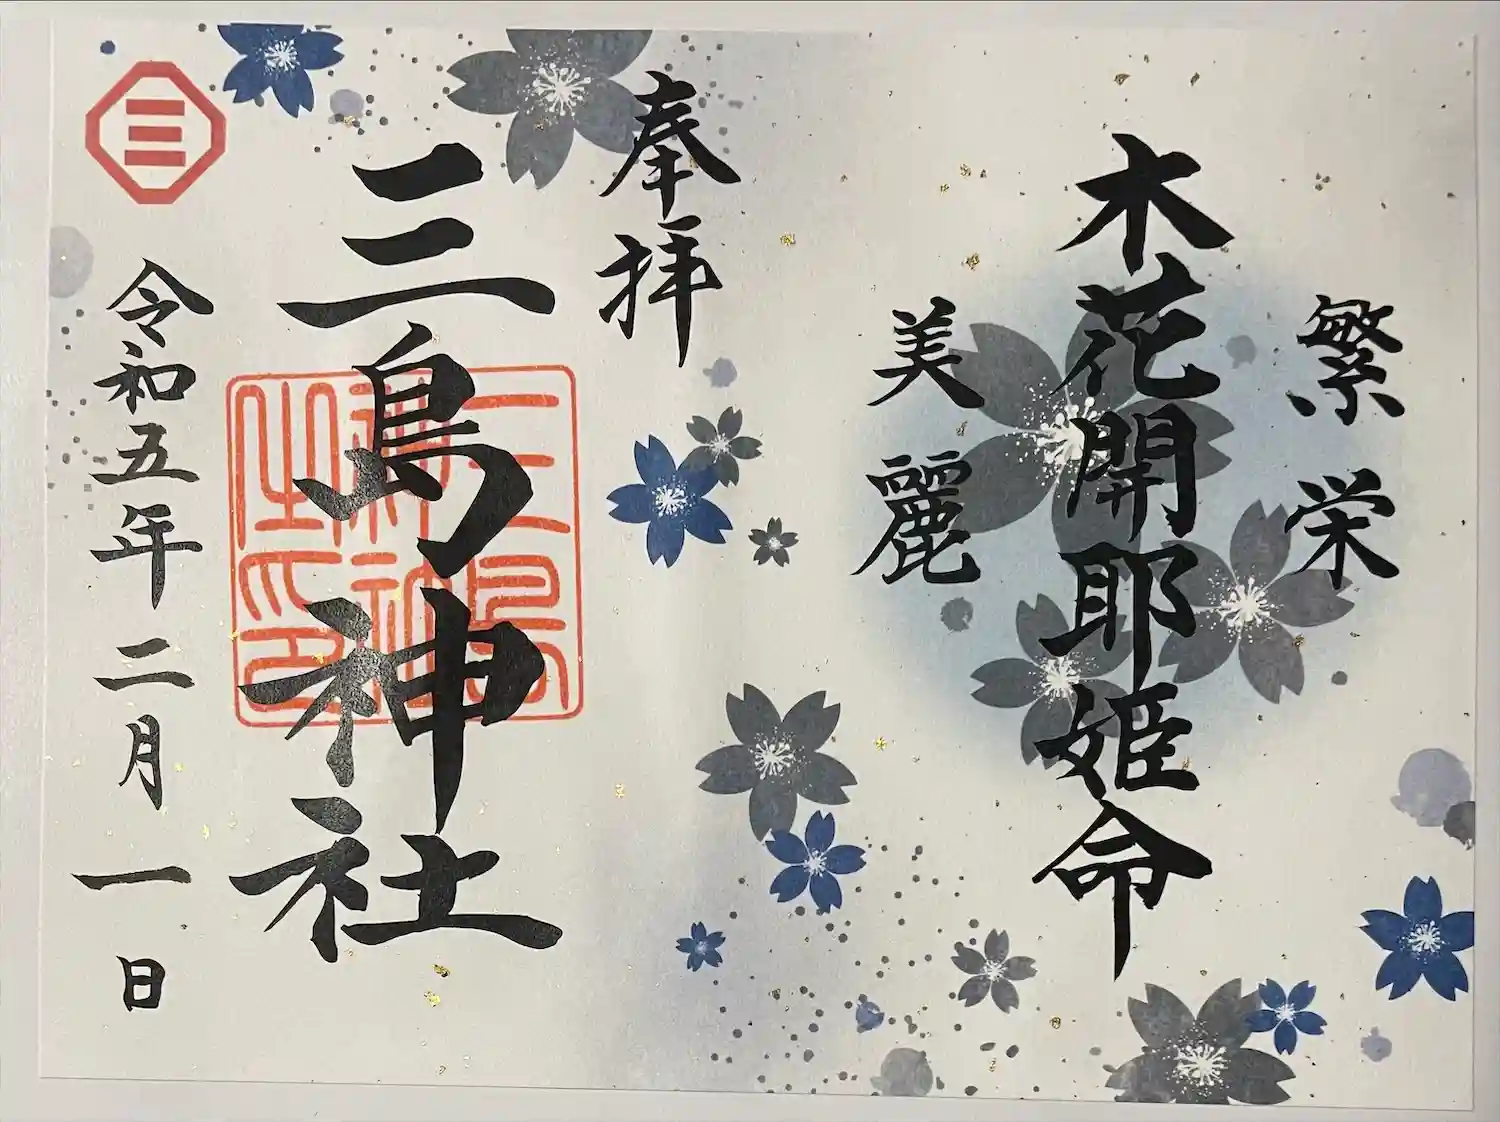 繁栄
木花開耶姫命
美麗
奉拝
三島神社
三島神社之印
令和五年二月一日
三